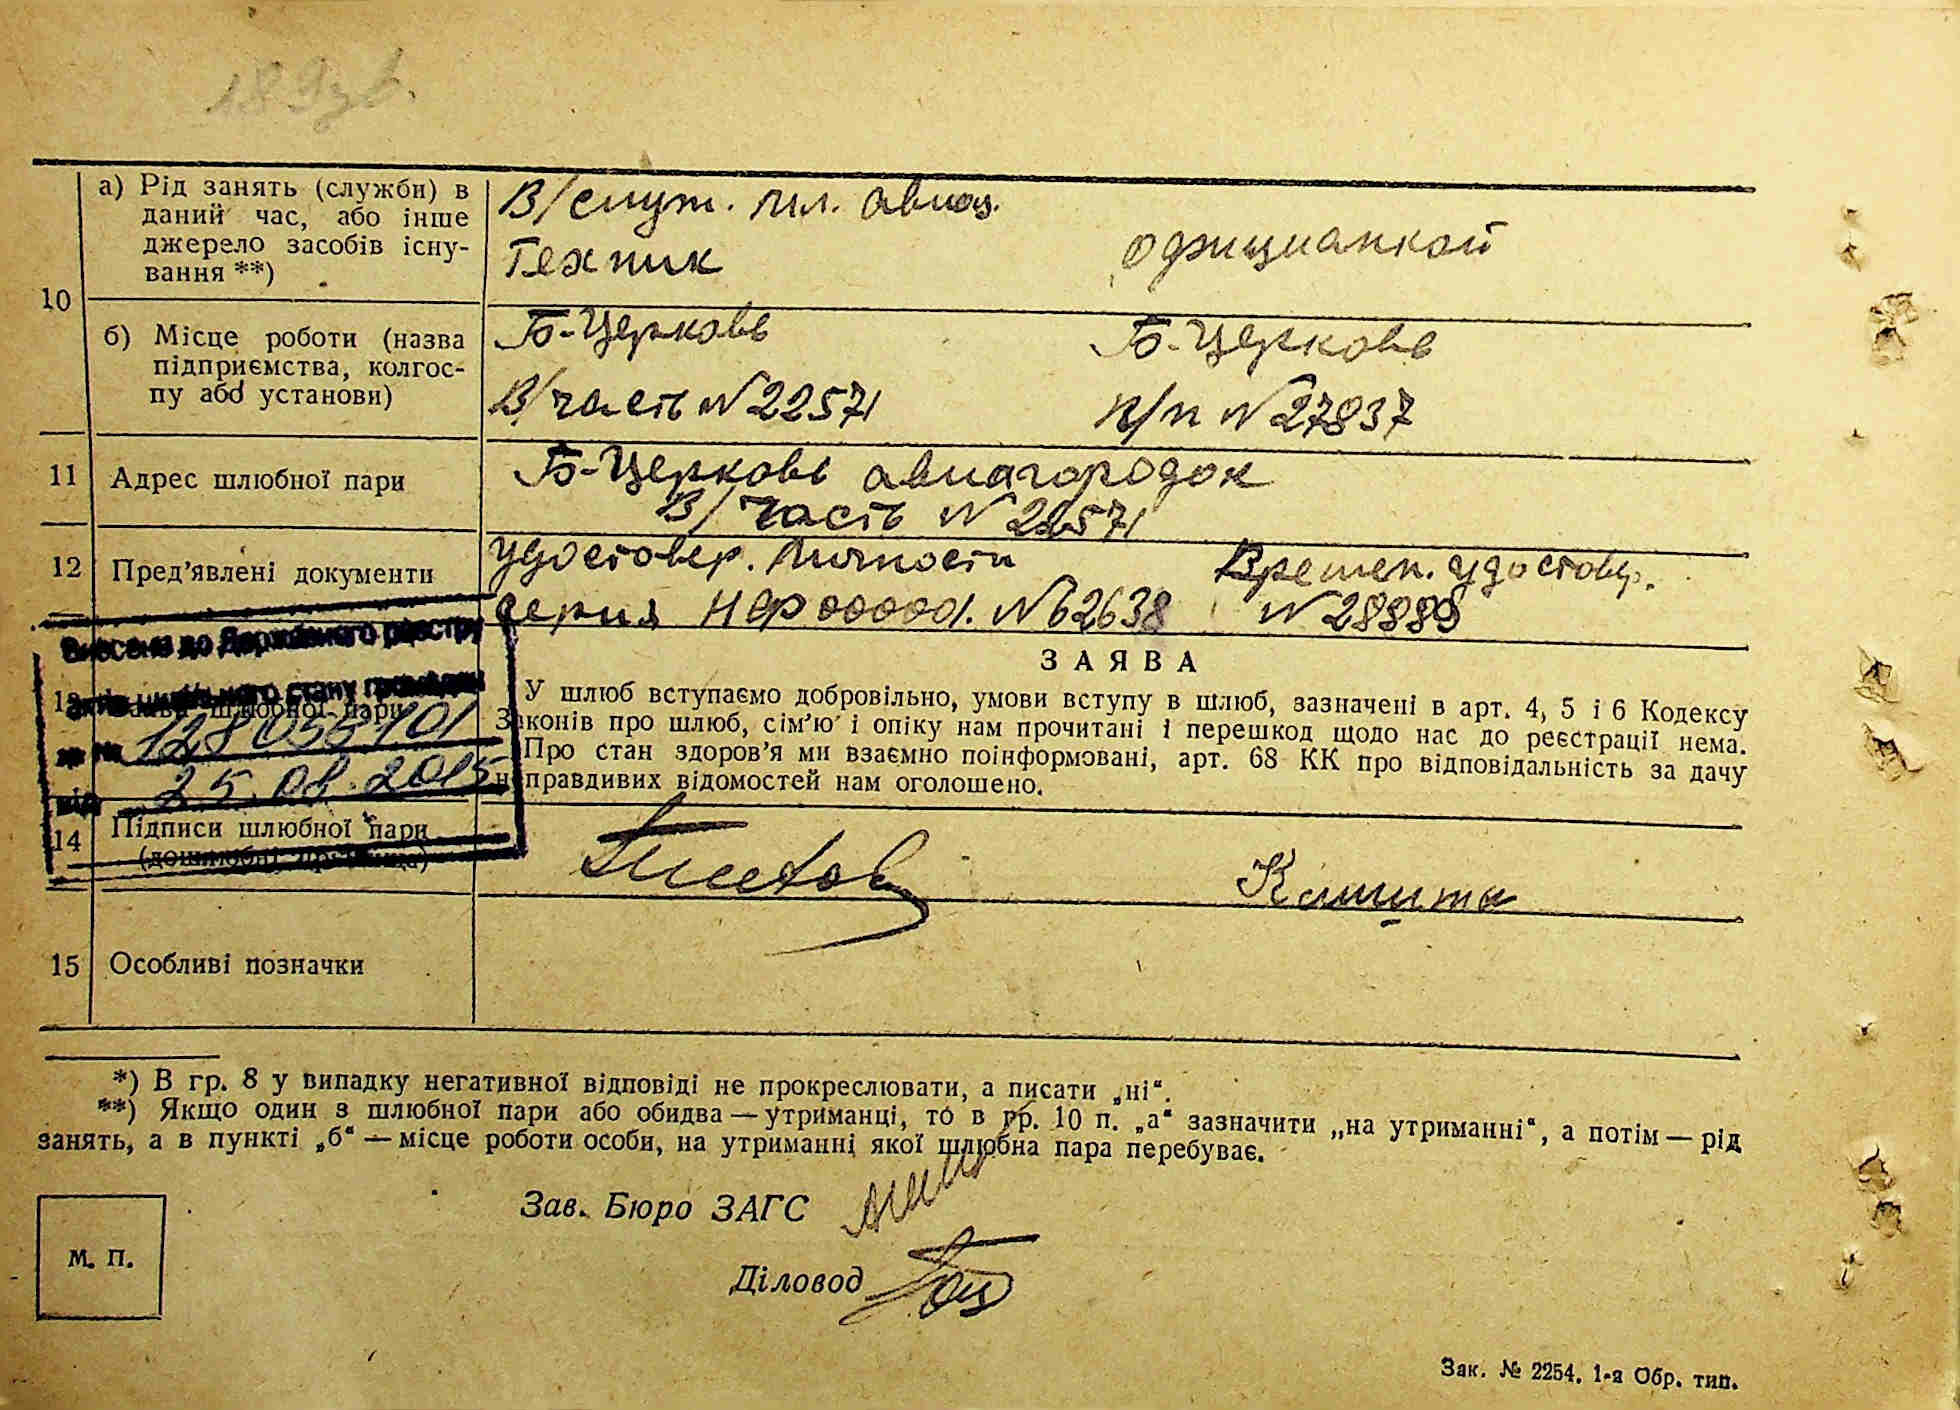 189зв.
10
а) Рід занять (служби) в
даний час, або інше
джерело засобів існу-
вання **)
В/служ. мл. авиац.
Техник
официанкой
б) Місце роботи (назва
підприємства, колгос-
пу або установи)
Б-Церковь
Б-Церковь
В/часть N 22571
п/п N 27837
11
Адрес шлюбної пари
Б-Церковь авиагородок
В/часть N 22571
12
Пред'явлені документи
удостовер. личности
Времен. удостовер.
серия
N 62638
N 28889
Внесено до Державного реєстру
актів цивільного стану громадян
за №
від 25.08.2015
13
шлюбної пари
ЗАЯВА
У шлюб вступаємо добровільно, умови вступу в шлюб, зазначені в арт. 4, 5 і 6 Кодексу
Законів про шлюб, сім'ю і опіку нам прочитані і перешкод щодо нас до реєстрації нема.
Про стан здоров'я ми взаємно поінформовані, арт. 68 КК про відповідальність за дачу
неправдивих відомостей нам оголошено.
14
Підписи шлюбної пари
(дошлюбні прізвища)
15
Особливі позначки
*) В гр. 8 у випадку негативної відповіді не прокреслювати, а писати „ні“.
**) Якщо один з шлюбної пари або обидва — утриманці, то в гр. 10 п. „а“ зазначити „на утриманні“, а потім — рід
занять, а в пункті „б“ — місце роботи особи, на утриманні якої шлюбна пара перебуває.
Зав. Бюро ЗАГС
М. П.
Діловод
Зак. № 2254. 1-а Обр. тип.